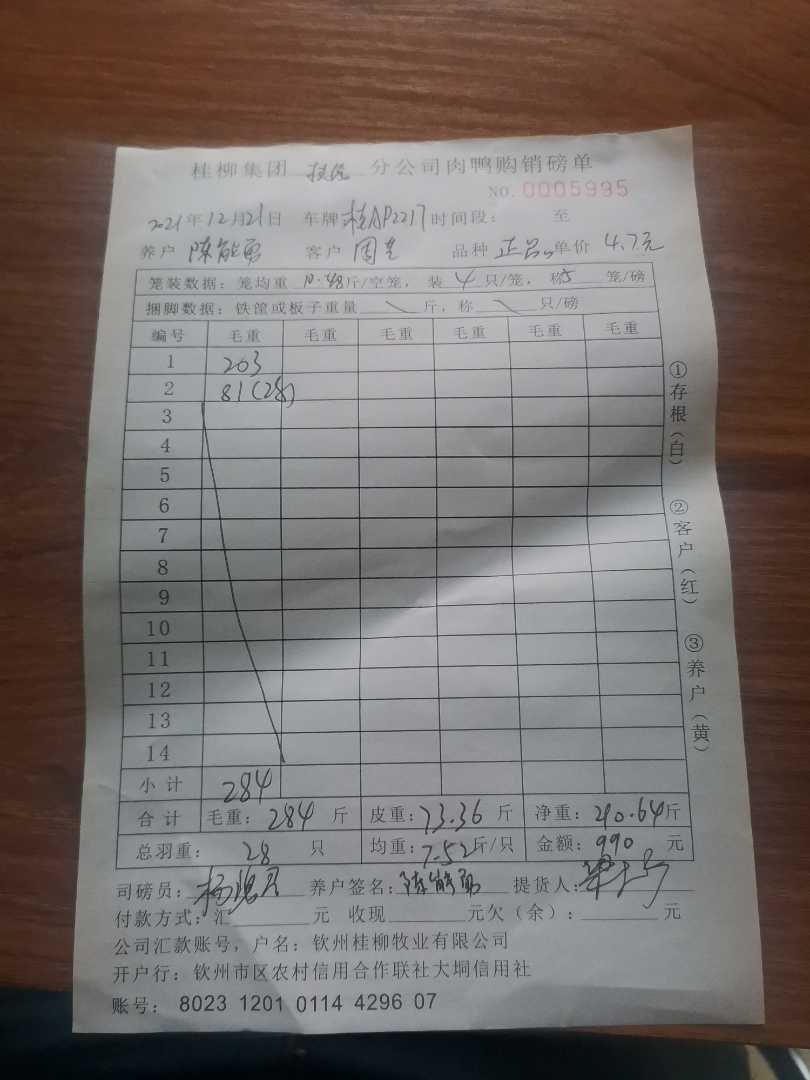 桂柳集团 扶绥 分公司肉鸭购销磅单
NO. 0005995
2021年12月21日 车牌桂AP2217时间段： 至
养户 陈能勇 客户 周 品种 正品 单价 4.7元
笼装数据：笼均重 10.48斤/空笼，装 4 只/笼，称5 笼/磅
捆脚数据：铁筐或板子重量 \ 斤，称 \ 只/磅
编号 毛重 毛重 毛重 毛重 毛重 毛重
1 203
2 81(28)
3
4
5
6
7
8
9
10
11
12
13
14
小计 284
合计 毛重：284 斤 皮重：73.36 斤 净重：210.64斤
总羽重： 28 只 均重：7.52斤/只 金额：990 元
司磅员：杨 养户签名：陈能勇 提货人：
付款方式：汇 元 收现 元欠（余）： 元
公司汇款账号，户名：钦州桂柳牧业有限公司
开户行：钦州市区农村信用合作联社大垌信用社
账号： 8023 1201 0114 4296 07
①存根（白）
②客户（红）
③养户（黄）